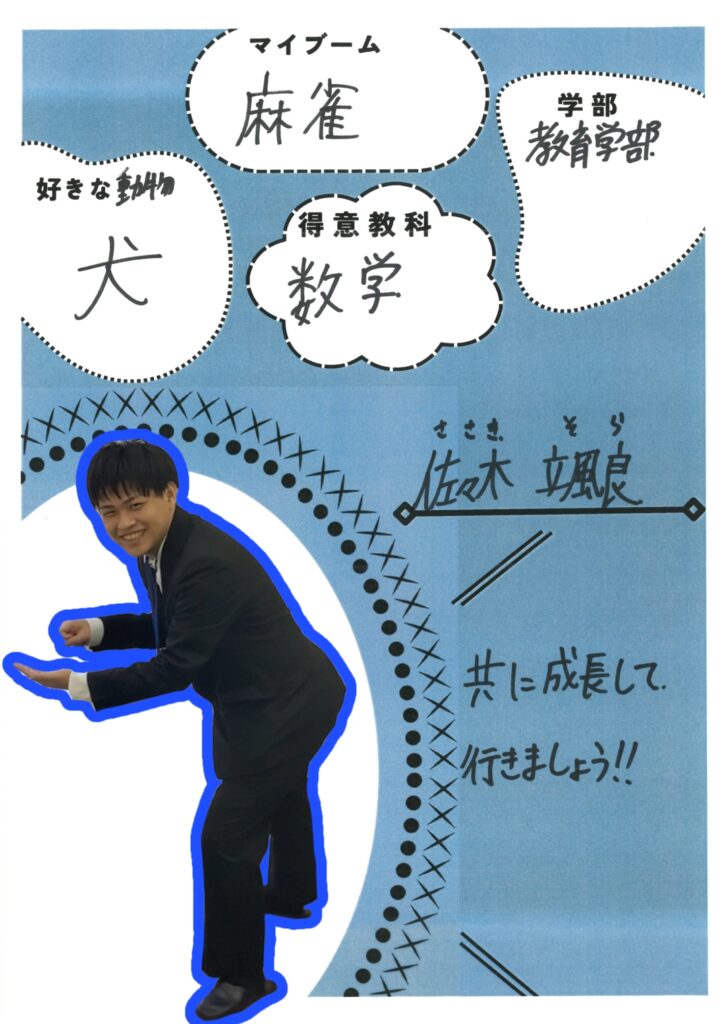 マイブーム
麻雀
学部
教育学部
好きな動物
犬
得意教科
数学
ささき そら
佐々木 颯良
共に成長して
行きましょう!!